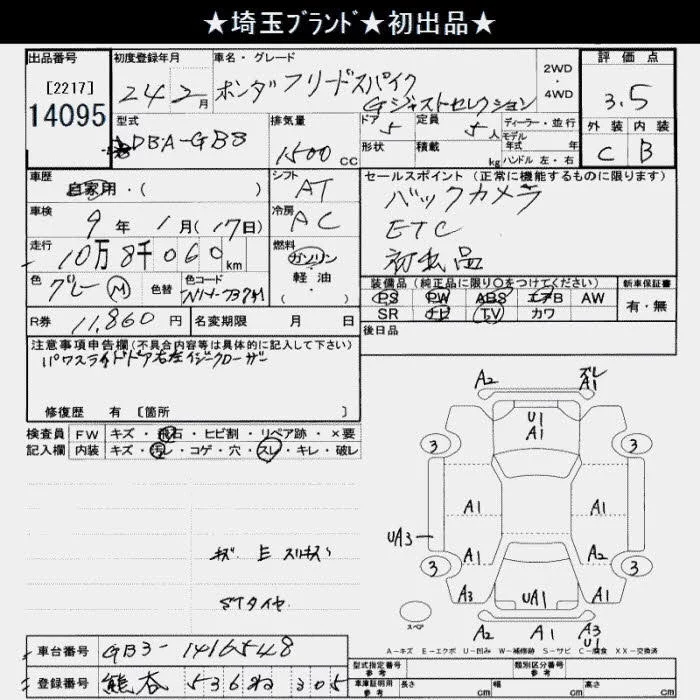 ★埼玉ﾌﾞﾗﾝﾄﾞ★初出品★
出品番号
[2217]
14095
初度登録年月
24年2月
車名・グレード
ホンダ フリードスパイク
Gジャストセレクション
2WD
・
4WD
評価点
3.5
外装 内装
C B
型式
DBA-GB3
排気量
1500cc
ドア 5
定員 5人
ディーラー・並行
モデル年式 年
形状
積載 kg
ハンドル 左・右
車歴
自家用・( )
シフト
AT
セールスポイント (正常に機能するものに限ります)
バックカメラ
ETC
初出品
車検
9年1月(17日)
冷房
AC
走行
10万8千060km
燃料
ガソリン
・
軽油
・
( )
色
グレーM
色替
色コード
NH-737M
装備品(純正品に限り〇をつけてください)
PS PW ABS エアB AW
SR ナビ TV カワ
新車保証書
有・無
R券 11,860円
名変期限 月 日
後日品
注意事項申告欄(不具合内容等は具体的に記入して下さい)
パワスライドドア右左イージークローザー
修復歴 有 [箇所 ]
検査員
記入欄
FW キズ・飛石・ヒビ割・リペア跡・×要
内装 キズ・汚レ・コゲ・穴・スレ・キレ・破レ
キズ スリキズ
タイヤ
A2
ズレ
A1
U1
A1
3 3
A1 A1
UA3
A1 A2
3 3
A3 UA1 A1
A2 A1 A3
U1
スペア
A-キズ E-エクボ U-凹み W-補修跡 S-サビ C-腐食 XX-交換済
車台番号 GB3-1416548
登録番号 熊谷 536 305
型式指定番号
参考
類別区分番号
参考
車庫証明用
参考
長さ cm
幅 cm
高さ cm